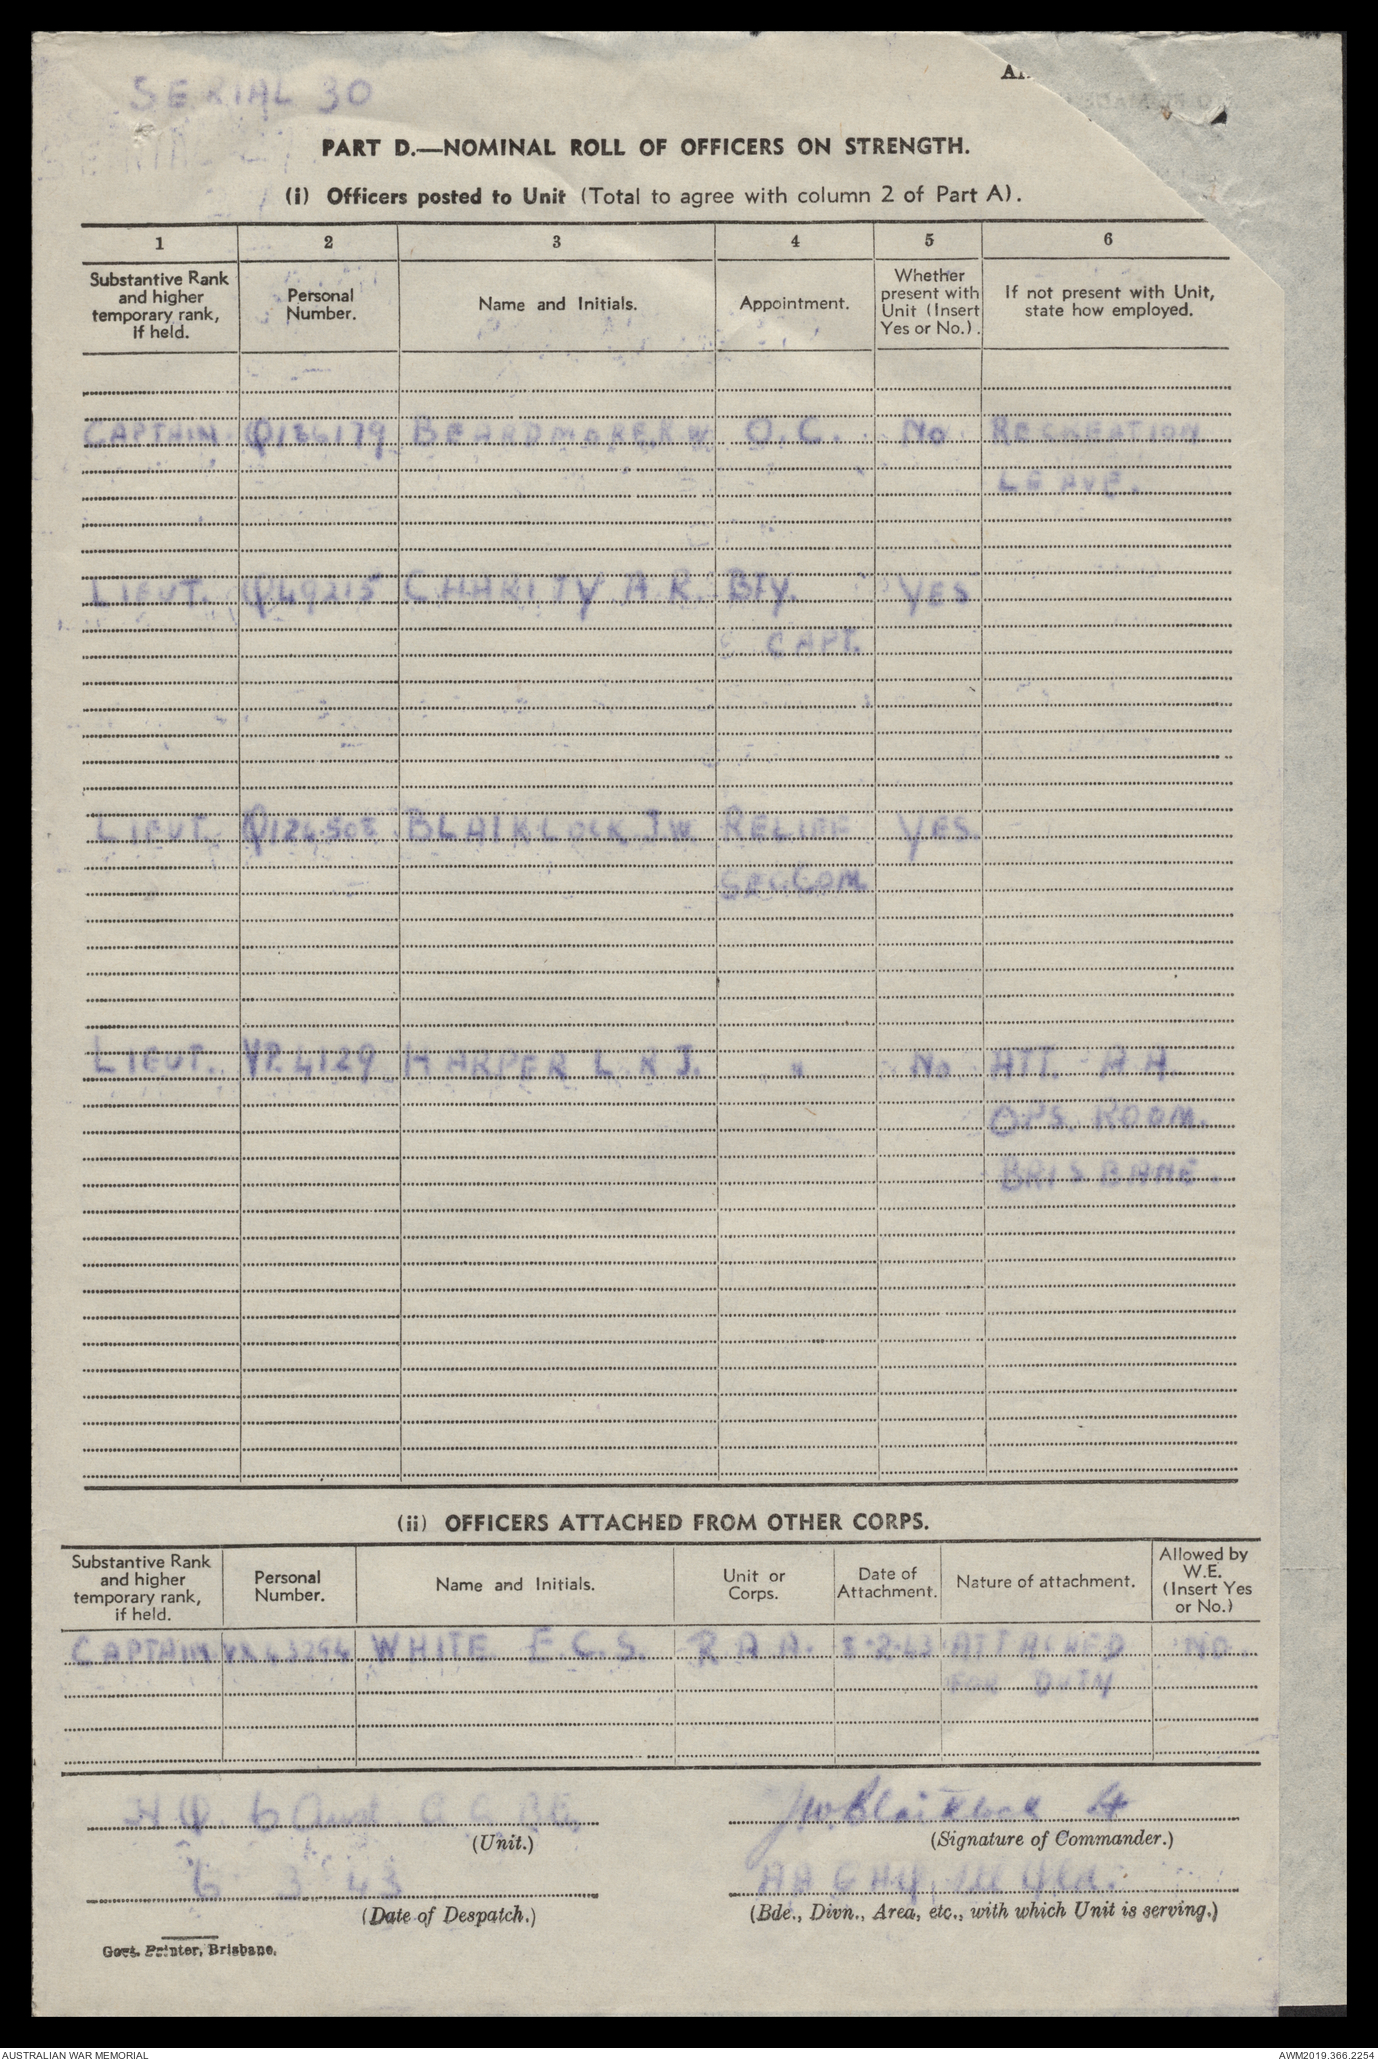 SERIAL 30
PART D.—NOMINAL ROLL OF OFFICERS ON STRENGTH.
(i) Officers posted to Unit (Total to agree with column 2 of Part A).
1 2 3 4 5 6
Substantive Rank and higher temporary rank, if held. Personal Number. Name and Initials. Appointment. Whether present with Unit (Insert Yes or No.). If not present with Unit, state how employed.
CAPTAIN. Q136179 BEARDMORE R.W. O.C. No RECREATION
LEAVE.
LIEUT. Q149215 CHARITY A.R. BTY. YES
CAPT.
LIEUT. BLAIKLOCK J.W. RELIEF YES.
SEC.COM.
LIEUT. HARPER L. " No ATT. A A
OPS. ROOM.
BRISBANE.
(ii) OFFICERS ATTACHED FROM OTHER CORPS.
Substantive Rank and higher temporary rank, if held. Personal Number. Name and Initials. Unit or Corps. Date of Attachment. Nature of attachment. Allowed by W.E. (Insert Yes or No.)
CAPTAIN. WHITE E.C.S. R A A. ATTACHED NO.
FOR DUTY
HQ 6 Aust
(Unit.)
J.W. Blaiklock Lt
(Signature of Commander.)
6 3 43
(Date of Despatch.)
(Bde., Divn., Area, etc., with which Unit is serving.)
Govt. Printer, Brisbane.
AUSTRALIAN WAR MEMORIAL
AWM2019.366.2254